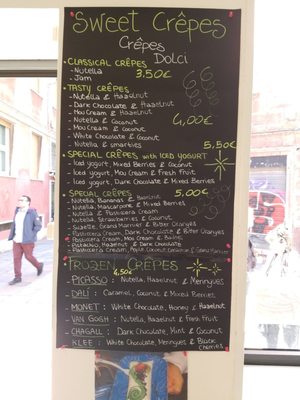 Sweet Crêpes
Crêpes
Dolci
• CLASSICAL CRÊPES
- Nutella 3,50€
- Jam
• TASTY CRÊPES
- Nutella & Hazelnut
- Dark Chocolate & Hazelnut
- Mou Cream & Hazelnut
- Nutella & Coconut 4,00€
- Mou Cream & Coconut
- White Chocolate & Coconut
- Nutella & smarties
5,50€
• SPECIAL CRÊPES with ICED YOGURT
- Iced yogurt, Mixed Berries & Coconut
- Iced yogurt, Mou Cream & Fresh Fruit
- Iced yogurt, Dark Chocolate & Mixed Berries
• SPECIAL CRÊPES 5,00€
- Nutella, Bananas & Hazelnut
- Nutella, Mascarpone & Mixed Berries
- Nutella & Pasticcera Cream
- Nutella, Strawberries & Coconut
- Suzette, Grand Marnier & Bitter Oranges
- Pasticcera Cream, Dark Chocolate & Bitter Oranges
- Pasticcera Cream, Mou Cream &
- Pistachio, Hazelnut & Dark Chocolate
- Pasticcera Cream, Apple, Cinnamon & Grand Marnier
FROZEN CRÊPES
6,50€
PICASSO : Nutella, Hazelnut & Meringues
DALÌ : Caramel, Coconut & Mixed Berries
MONET : White Chocolate, Honey & Hazelnut
VAN GOGH : Nutella, Hazelnut & Fresh Fruit
CHAGALL : Dark Chocolate, Mint & Coconut
KLEE : White Chocolate, Meringues & Black
Cherries